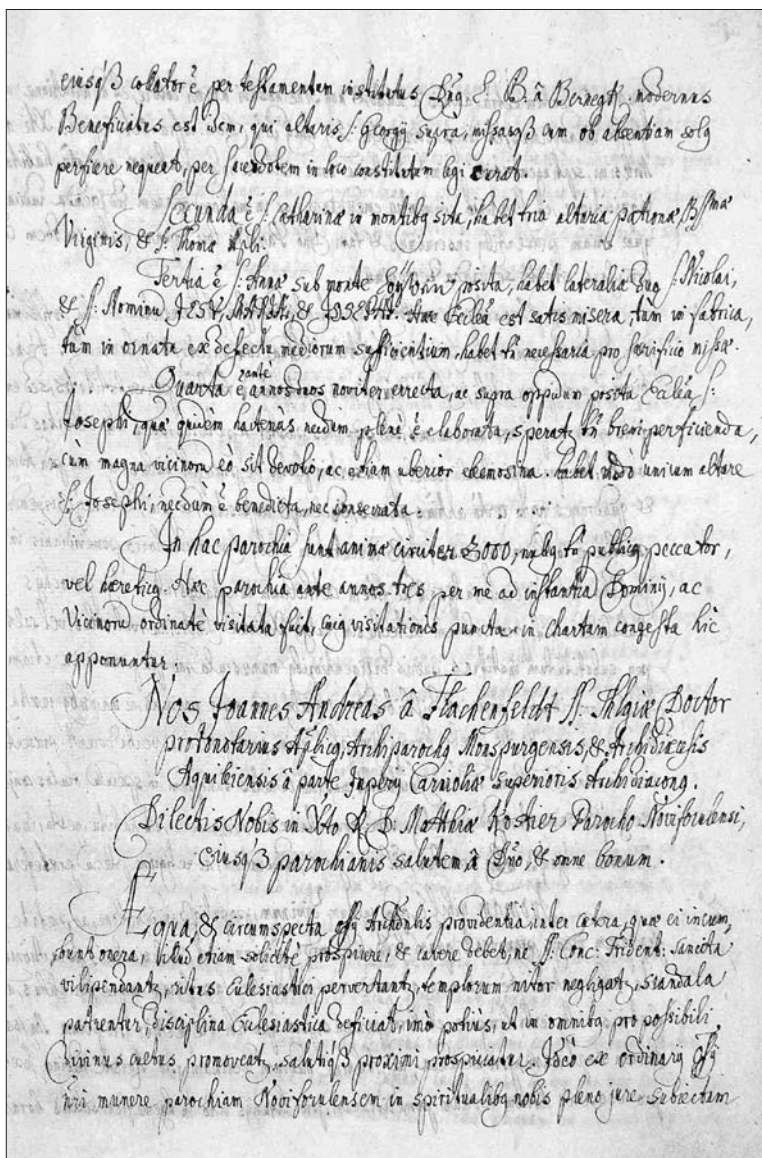 eiusq3 collator ē per testamentum institutus Dñg L. B. â Bernegkh, modernus
Beneficiatus est Idem, qui altaris S. Georgÿ supra, missasq3 cum, ob absentiam solg
perficere nequeat, per sacerdotem in loco constitutum legi curat.
Secunda ē S. Catharinæ in montibg sita, habet tria altaria patronæ, B. V. Mæ
Virginis, & S. Thomæ Apli.
Tertia ē S. Annæ sub monte posita, habet lateralia duo S. Nicolai,
& S. Nominū JESV, MARIÆ, & JOSEPHI. Hæc Ecclēa est satis misera, tùm in fabrica,
tùm in ornatu ex defectu mediorum sufficientium, habet tñ necessaria pro sacrificio missæ.
Quarta ē ante annos duos noviter errecta, ac supra oppidum posita Ecclēa S.
Josephi, quæ quidèm hactenùs necdum plenè ē elaborata, speratɀ tñ brevi perficienda,
cùm magna vicinorū eò sit devotio, ac etiam uberior elemosina. habet modò unicum altare
S. Josephi, necdùm ē benedicta, nec consecrata.
In hac parochia sunt animæ circiter 2000, nullg tñ publicg peccator,
vel hæreticg. Hæc parochia ante annos tres per me ad instantiā Dominÿ, ac
Vicinorū ordinatè visitata fuit, cuig visitationis puncta in chartam congesta hìc
apponuntur.
Nos Joannes Andreas â Flachenfeldt S. Thlgiæ Doctor
protonotarius Aplicg, Archiparochg Monspurgensis, & Archidiæcesis
Aquileiensis â parte Imperÿ Carniolæ superioris Archidiacong.
Dilectis Nobis in Xto A. D. Matthiæ Kostier Parocho Noviforulensi,
eiusq3 parochianis salutem â Dño, & omne bonum.
Æqua, & circumspecta offÿ Archidnlis providentia, inter cætera, quæ ei incum,
bunt onera, illud etiam solicitè prospicere, & cavere debet, ne S. Conc: Trident: sancita
vilipendantɀ, ritus Ecclesiastici pervertantɀ, templorum nitor negligatɀ, scandala
patrentur, disciplina Ecclesiastica deficiat, imò potiùs, ut in omnibg pro possibili
Divinus cultus promoveatɀ, salutiq3 proximi prospiciatur. Ideò ex ordinarÿ offÿ
ñri munere parochiam Noviforulensem in spiritualibg nobis pleno jure subiectam